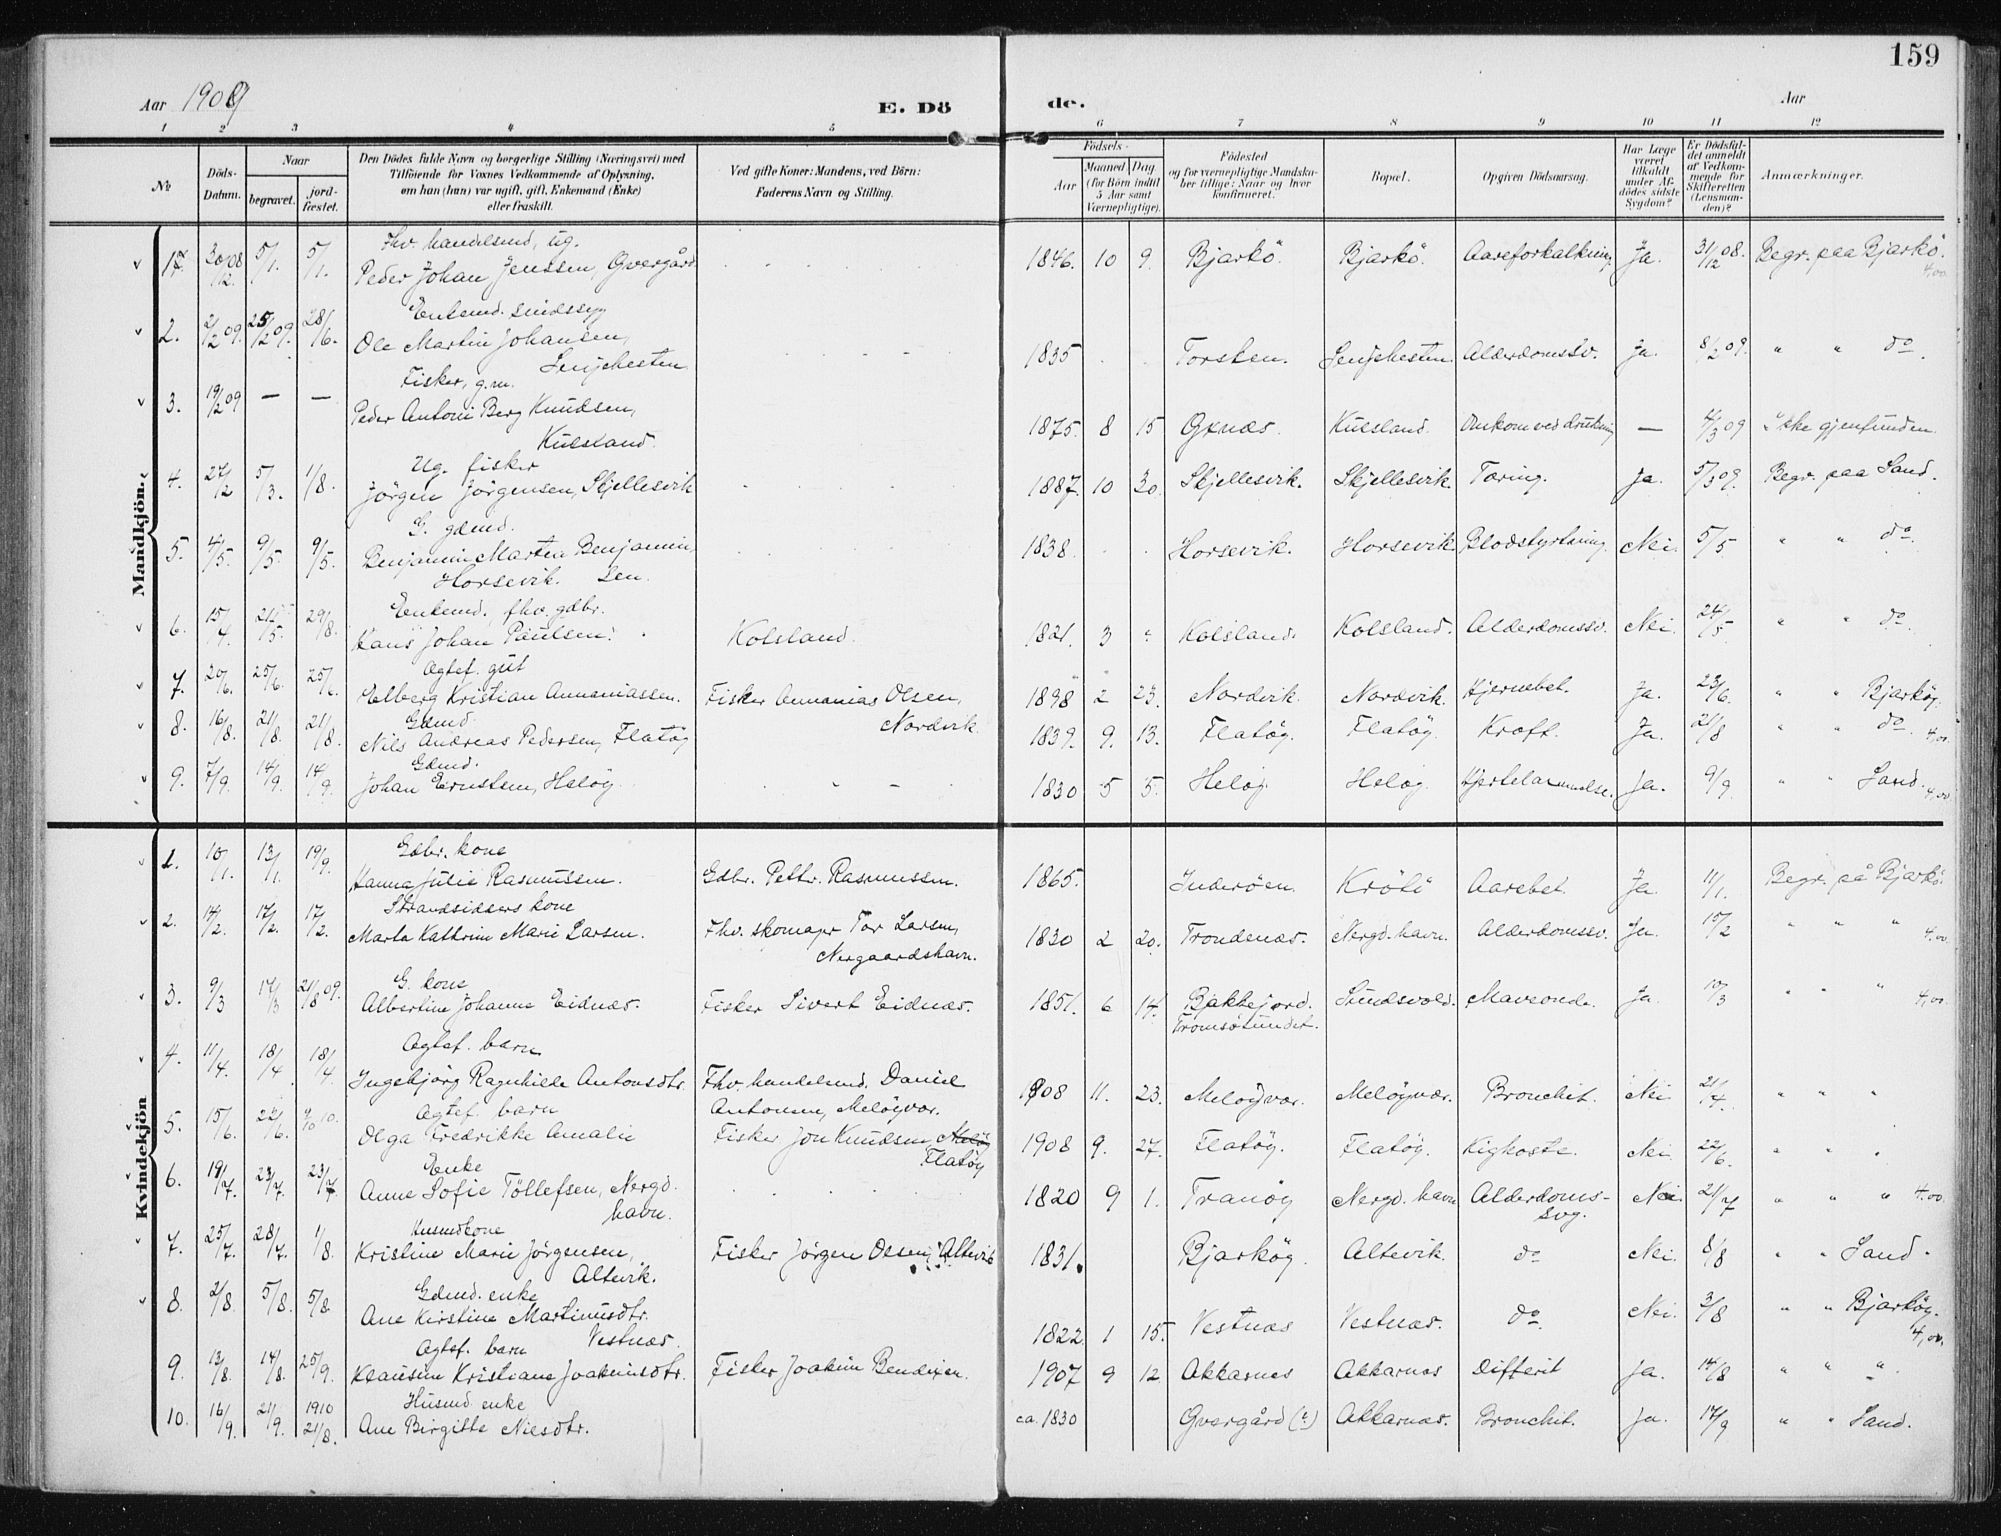 159
Aar 1909
E. Dö
de.
Aar
1 2 3 4 5 6 7 8 9 10 11 12
No
Döds-Datum.
Naar
begravet.
jord-fæstet.
Den Dödes fulde Navn og borgerlige Stilling (Næringsvei) med
Tilföiende for Voxnes Vedkommende af Oplysning,
om han (hun) var ugift, gift, Enkemand (Enke)
eller fraskilt.
Ved gifte Koner: Mandens, ved Börn:
Faderens Navn og Stilling.
Födsels-
Aar
Maaned
Dag.
(for Börn indtil
5 Aar samt
Værnepligtige).
Födested
og for værnepligtige Mandska-
ber tillige: Naar og hvor
konfirmeret.
Bopæl.
Opgiven Dödsaarsag.
Har Læge
været
tilkaldt
under Af-
dödes sidste
Sygdom?
Er Dödsfal-
det anmeldt
af Vedkom-
mende for
Skifteretten
(Lensman-
den)?
Anmærkninger.
Mandkjön.
Fhv. handelsmd, ug.
1. 30/12 08 5/1. 5/1. Peder Johan Jenssen, Øvergård 1846. 10 9. Bjarkö. Bjarkö. Aareforkalkning Ja. 31/12 08. Begr. paa Bjarkö. 4,00
Enkemd. sindssyg
2. 2/2 09. 25/2 09. 28/6. Ole Martin Johansen, 1835 Torsken. Senjehesten Alderdomssv. Ja. 8/2 09. " " do.
Senjehesten
Fisker, g.m.
3. 19/2 09 — — Peder Antoni Berg Knudsen, 1875. 8 15 Grnæs. Kulsland. Omkom ved drukning — 4/3 09 Ikke gjenfunden
Kulsland.
Ug. fisker
4. 27/12 5/3. 1/8. Jörgen Jörgensen, Skjellesvik 1887. 10 30. Skjellesvik. Skjellesvik. Tæring. Ja. 5/3 09. Begr. paa Sand.
G. gdmd.
5. 4/5. 9/5. 9/5. Benjamin Martin Benjamin, 1838. Horsevik. Horsevik Blodstyrtning. Nei. 5/5 " " do.
Horsevik. sen.
Enkemd. fhv. gdbr.
6. 15/4. 21/5. 29/8. Hans Johan Paulsen. Kolsland. 1821. 3 " Kolsland. Kolsland. Alderdomssv. Nei. 24/5 " " do.
Ægtef. gut
7. 20/6. 25/6. 25/6. Elberg Kristian Annaniassen. Fisker Annanias Olsen, 1898 2 23. Nordvik. Nordvik. Hjernebet. Ja. 23/6. " " Bjarköy
Nordvik
Gdmd.
8. 16/8. 21/8. 21/8. Nils Andreas Pedersen, Flatöy 1839. 9. 13. Flatöy. Flatöy. Kræft. Ja. 21/8 " " do. 4,00
Gdmd.
9. 7/9. 14/9. 14/9. Johan Ernstsen, Helöy. 1830 5 5. Helöy. Helöy. Hjertelammelse. Ja. 9/9 " " Sand. 4,00
Kvindekjön
Gdbr. kone
1. 10/1. 13/1 19/9. Hanna Julie Rasmussen. Gdbr. Pettr. Rasmussen. 1865. Inderöen. Aarebet. Ja 11/1. Begr. på Bjarkö.
Strandsidders kone
2. 14/2. 17/2. 17/2. Marta Kathrine Marie Larsen. Fhv. skomager Tor Larsen, 1830 2 20. Trondenæs. Nergd. havn. Alderdomssv. Ja. 15/2 " " " 4.00
Nergaardshavn.
G. kone
3. 9/3 17/3 21/8 09. Albertine Johanne Eidnæs. Fisker Sivert Eidnæs. 1851. 6 14. Bakkejord. Sundsvold. Maveonde. Ja. 10/3 " " " 4,00
Tromsösundet.
Ægtef. barn
4. 11/4. 18/4 18/4 Ingebjörg Ragnhilde Antonsdtr. Fhv. handelsmd. Daniel 1908 11. 23. Melöyvær. Melöyvær. Bronchit. Nei 21/4. " " "
Ægtef. barn Antonsen, Melöyvær.
5. 15/6. 22/6. 10. Olga Fredrikke Amalie Fisker Jon Knudsen, Melöy 1908 9. 27. Flatöy. Flatöy. Kighoste. Nei 22/6. " " "
Flatöy
Enke
6. 19/7. 23/7 23/7 Anne Sofie Töllefsen, Nergd. 1820 9 1. Tranöy Nergd. havn Alderdoms- Nei. 21/7 " " " 4.00
havn. svg.
Husmdkone
7. 25/7. 28/7. 1/8. Kristine Marie Jörgensen, Fisker Jörgen Olsen, Altevik 1831. Bjarköy. Altevik. do Nei. 8/8 " " Sand.
Altevik.
Gdmd. enke
8. 2/8. 5/8. 5/8. Ane Kirstine Martinusdtr. 1822. 1 15. Vestnæs Vestnæs. do. Nei. 3/8 " " Bjarköy. 4,00.
Vestnæs.
Ægtef. barn
9. 13/8. 14/8. 25/9. Klausine Kristiane Joakimsdtr. Fisker Joakim Bendixen. 1907 9 12 Akkarnæs Akkarnæs Difterit Ja. 14/8 " " "
Husmd. enke
10. 16/9. 21/9. 1910 21/8. Ane Birgitte Nilsdtr. ca. 1830 Øvergård (?) Akkarnæs. Bronchit. Ja. 17/9 " " Sand.